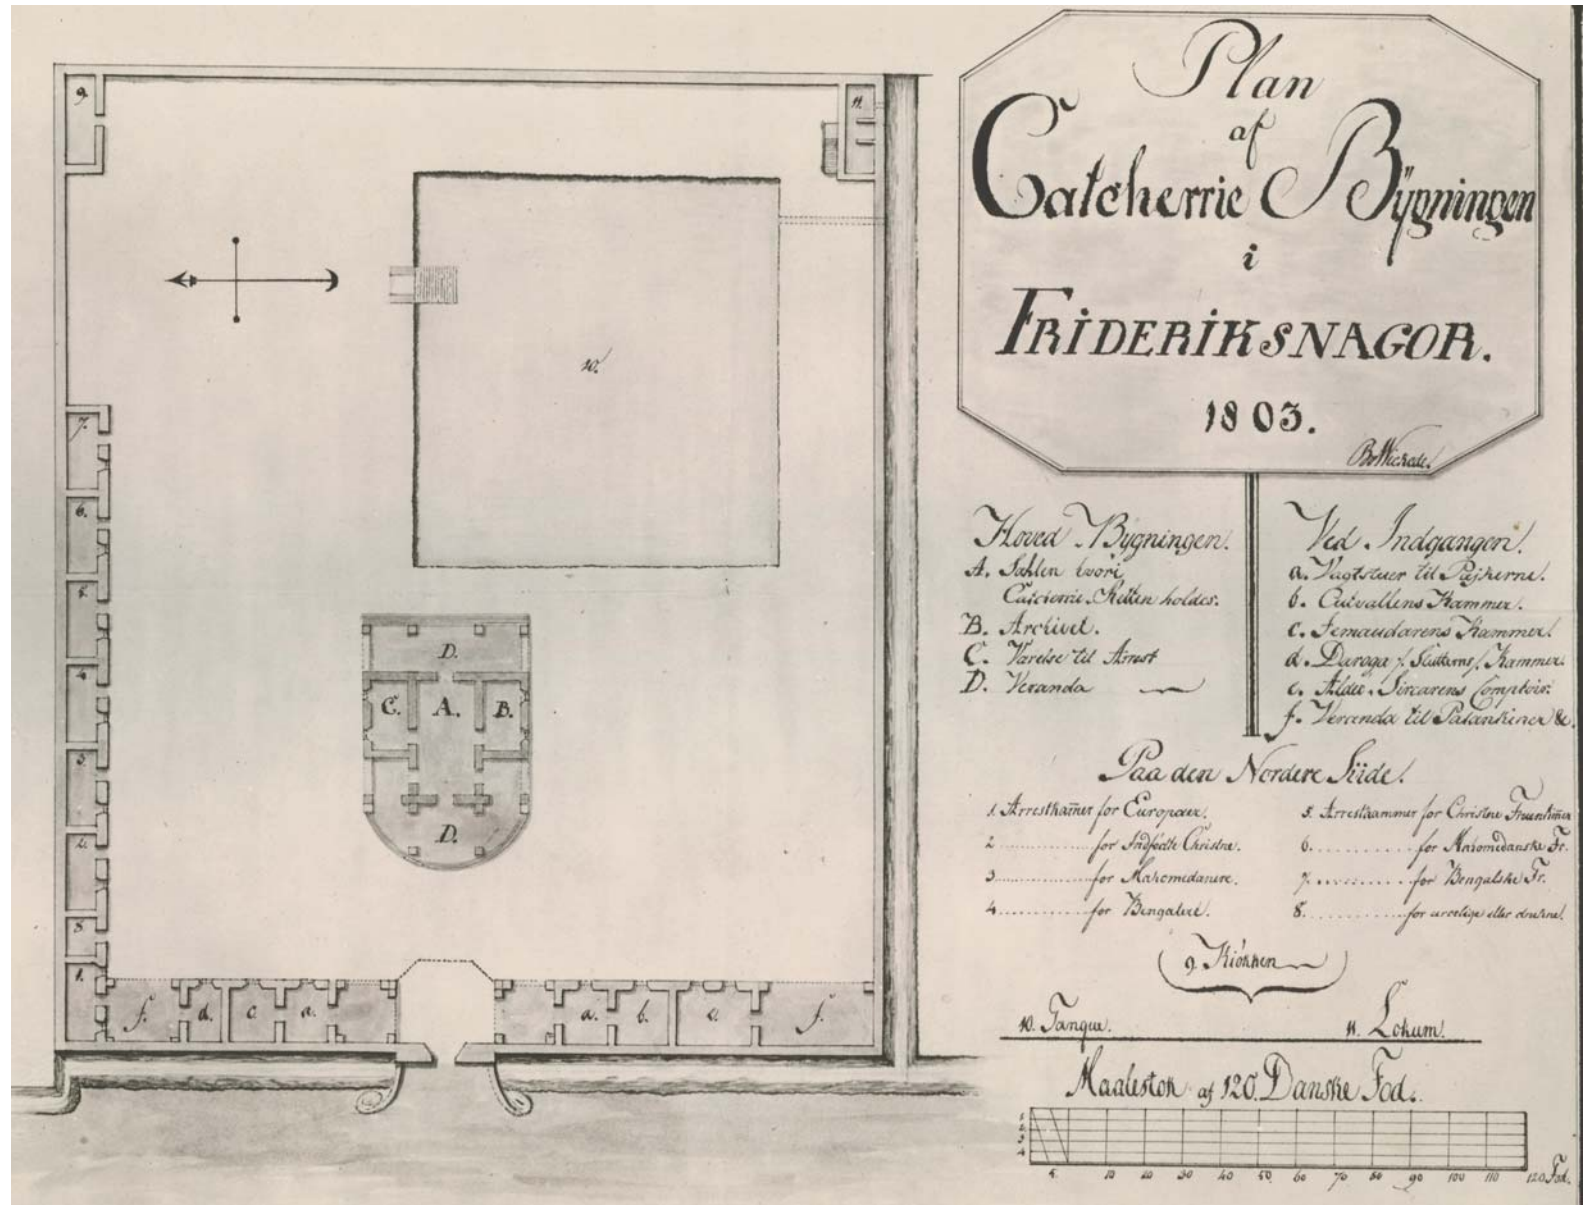 Plan
af
Catcherrie Bÿgningen
i
FRIDERIKSNAGOR.
1803.
BvWickede.
Hoved Bygningen.
A. Sahlen hvori
Catcherrie Retten holdes.
B. Archivet.
C. Værelse til Arrest
D. Veranda
Ved Indgangen.
a. Vagtstuer til Pejkerne.
b. Cutvallens Kammer.
c. Jemaudarens Kammer.
d. Daroga / Slutterns / Kammer.
e. Aldee-Sircarens Comptoir.
f. Veranda til Palankiner &c.
Paa den Nordere Siide.
1. Arrestkam̄er for Europæer.
2 ............ for Indfødte Christne.
3 ............ for Mahomedanere.
4 ............ for Bengalere.
5. Arrestkammer for Christne Fruentim̄er
6. .......... for Mahomedanske Fr.
7. .......... for Bengalske Fr.
8. .......... for urolige eller drukne.
9. Kiökken
10. Tanque.
11. Lokum.
Maalestok af 120. Danske Fod.
1
2
3
4
5. 10 20 30 40 50. 60 70 80 90 100 110 120 Fod.
9.
11.
10.
7.
6.
5.
4.
3.
2.
8.
1.
D.
C. A. B.
D.
f. d. c. a. a. b. e. f.